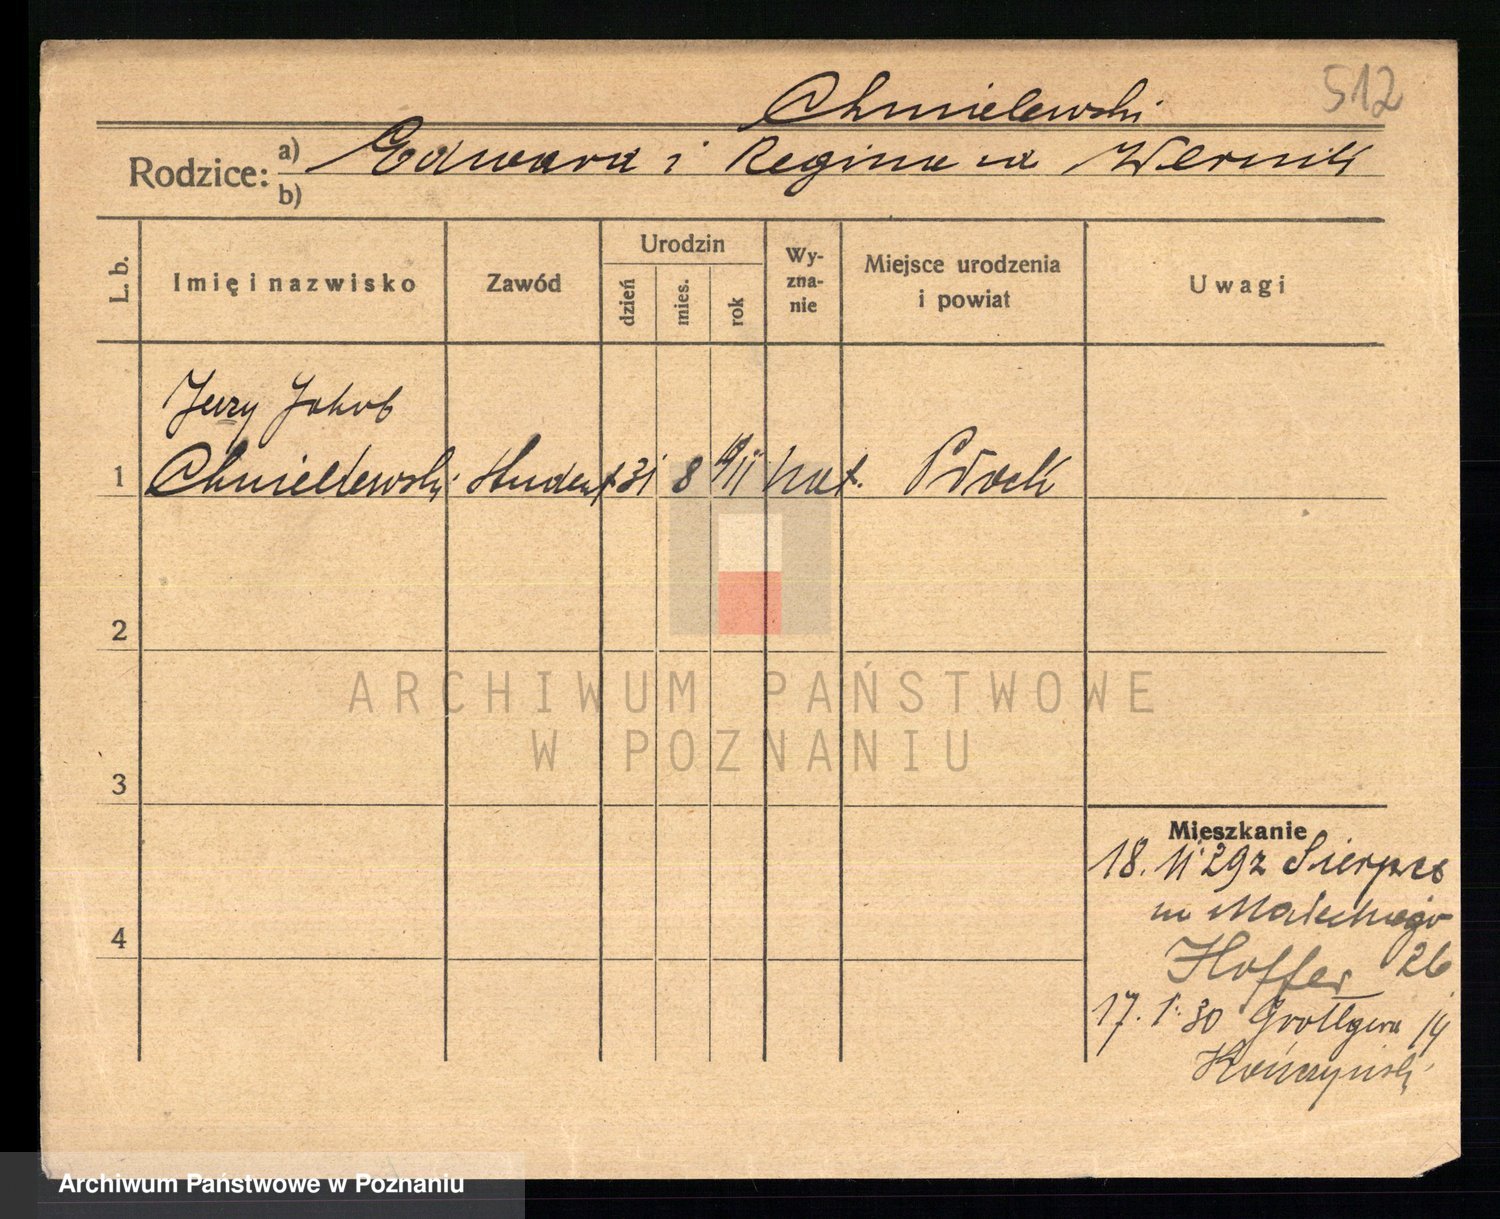 512
Chmielewski
Rodzice: a) Edward i Regina zd Wernik
b)
L. b.
Imię i nazwisko
Zawód
Urodzin
dzień
mies.
rok
Wy-
zna-
nie
Miejsce urodzenia
i powiat
Uwagi
Jerzy Jakob
1 Chmielewski student 31 8 1911 kat. Płock
2
3
4
Mieszkanie
18. 11. 29 z Sierpca
Małeckiego
Hoffer 26
17. 1. 30 Grottgera 14
ARCHIWUM PAŃSTWOWE
W POZNANIU
Archiwum Państwowe w Poznaniu